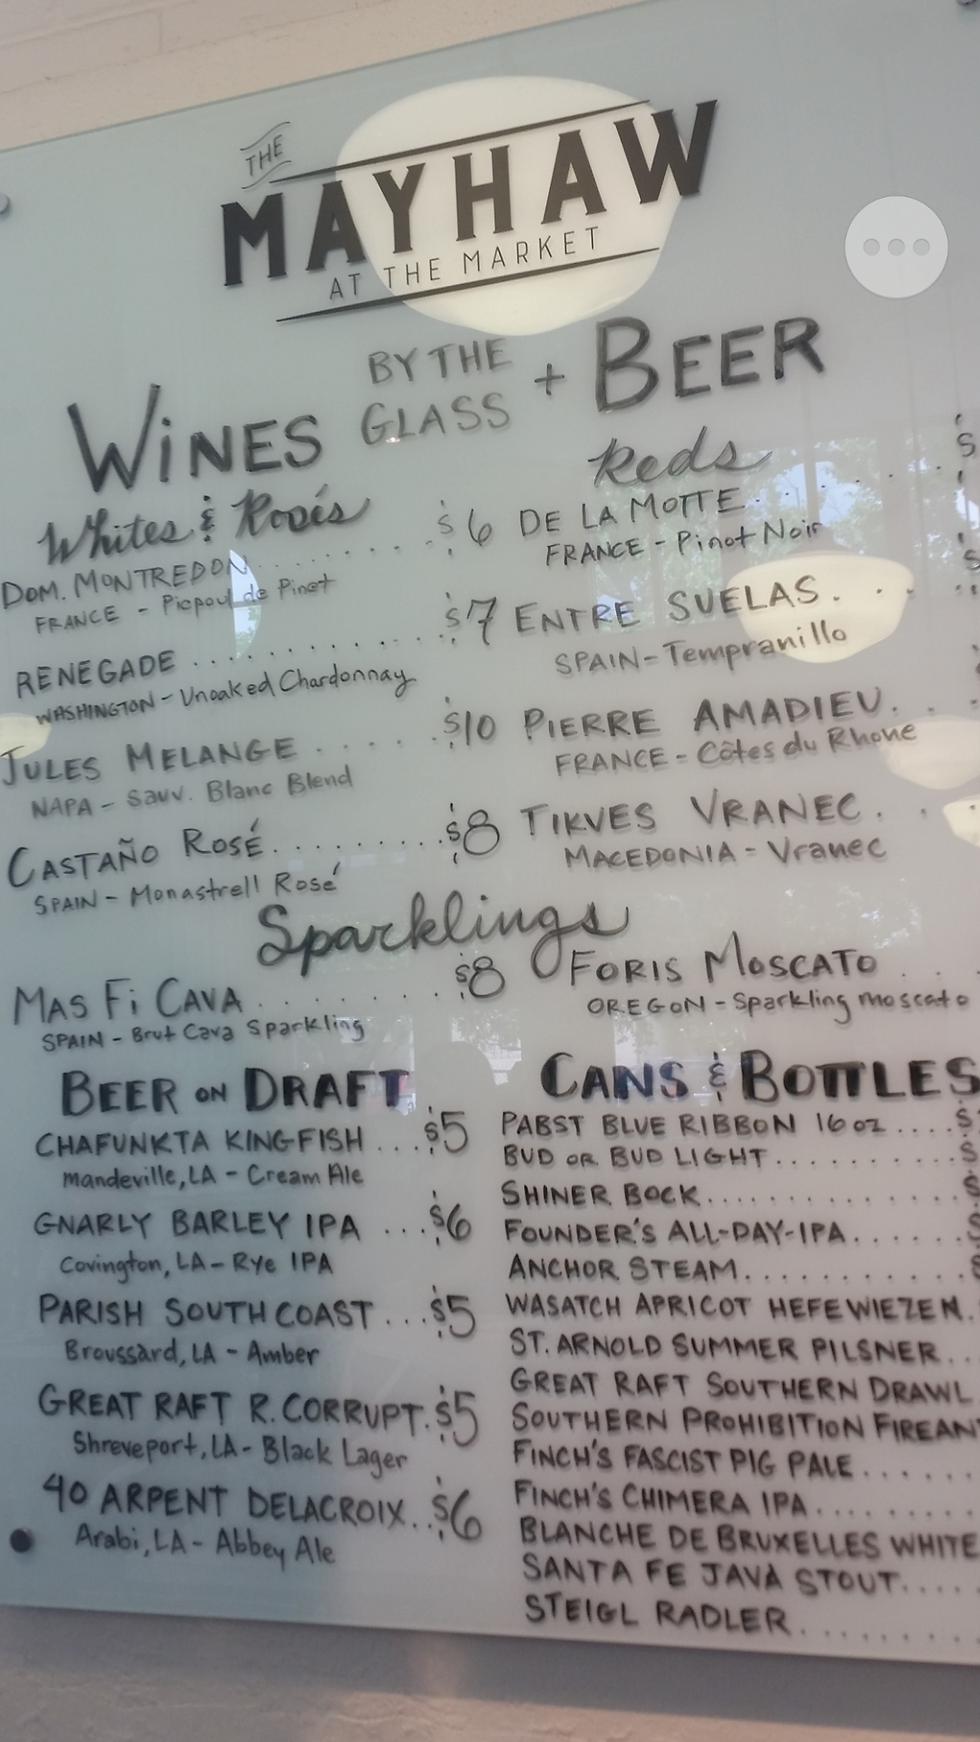 THE
MAYHAW
AT THE MARKET
WINES BY THE GLASS + BEER
Whites & Rosés
DOM. MONTREDON . . . . . . . . $6
FRANCE - Picpoul de Pinet
RENEGADE . . . . . . . . . . . $7
WASHINGTON - Unoaked Chardonnay
JULES MELANGE . . . . . $10
NAPA - Sauv. Blanc Blend
CASTAÑO ROSÉ . . . . . . . . . $8
SPAIN - Monastrell Rosé
Reds
DE LA MOTTE . . . . . . $
FRANCE - Pinot Noir
ENTRE SUELAS . . . . $
SPAIN - Tempranillo
PIERRE AMADIEU . . .
FRANCE - Côtes du Rhone
TIKVES VRANEC . .
MACEDONIA - Vranec
Sparklings
MAS FI CAVA . . . . . . . . $8
SPAIN - Brut Cava Sparkling
FORIS MOSCATO . .
OREGON - Sparkling moscato
BEER ON DRAFT
CHAFUNKTA KINGFISH ... $5
mandeville, LA - Cream Ale
GNARLY BARLEY IPA ... $6
Covington, LA - Rye IPA
PARISH SOUTH COAST ... $5
Broussard, LA - Amber
GREAT RAFT R. CORRUPT. $5
Shreveport, LA - Black Lager
40 ARPENT DELACROIX .. $6
Arabi, LA - Abbey Ale
CANS & BOTTLES
PABST BLUE RIBBON 16 oz .... $
BUD OR BUD LIGHT .......... $
SHINER BOCK ............. $
FOUNDER'S ALL-DAY-IPA ...... $
ANCHOR STEAM ........... $
WASATCH APRICOT HEFEWIEZEN.
ST. ARNOLD SUMMER PILSNER ...
GREAT RAFT SOUTHERN DRAWL
SOUTHERN PROHIBITION FIREANT
FINCH'S FASCIST PIG PALE ......
FINCH'S CHIMERA IPA .........
BLANCHE DE BRUXELLES WHITE
SANTA FE JAVA STOUT ....
STEIGL RADLER .........